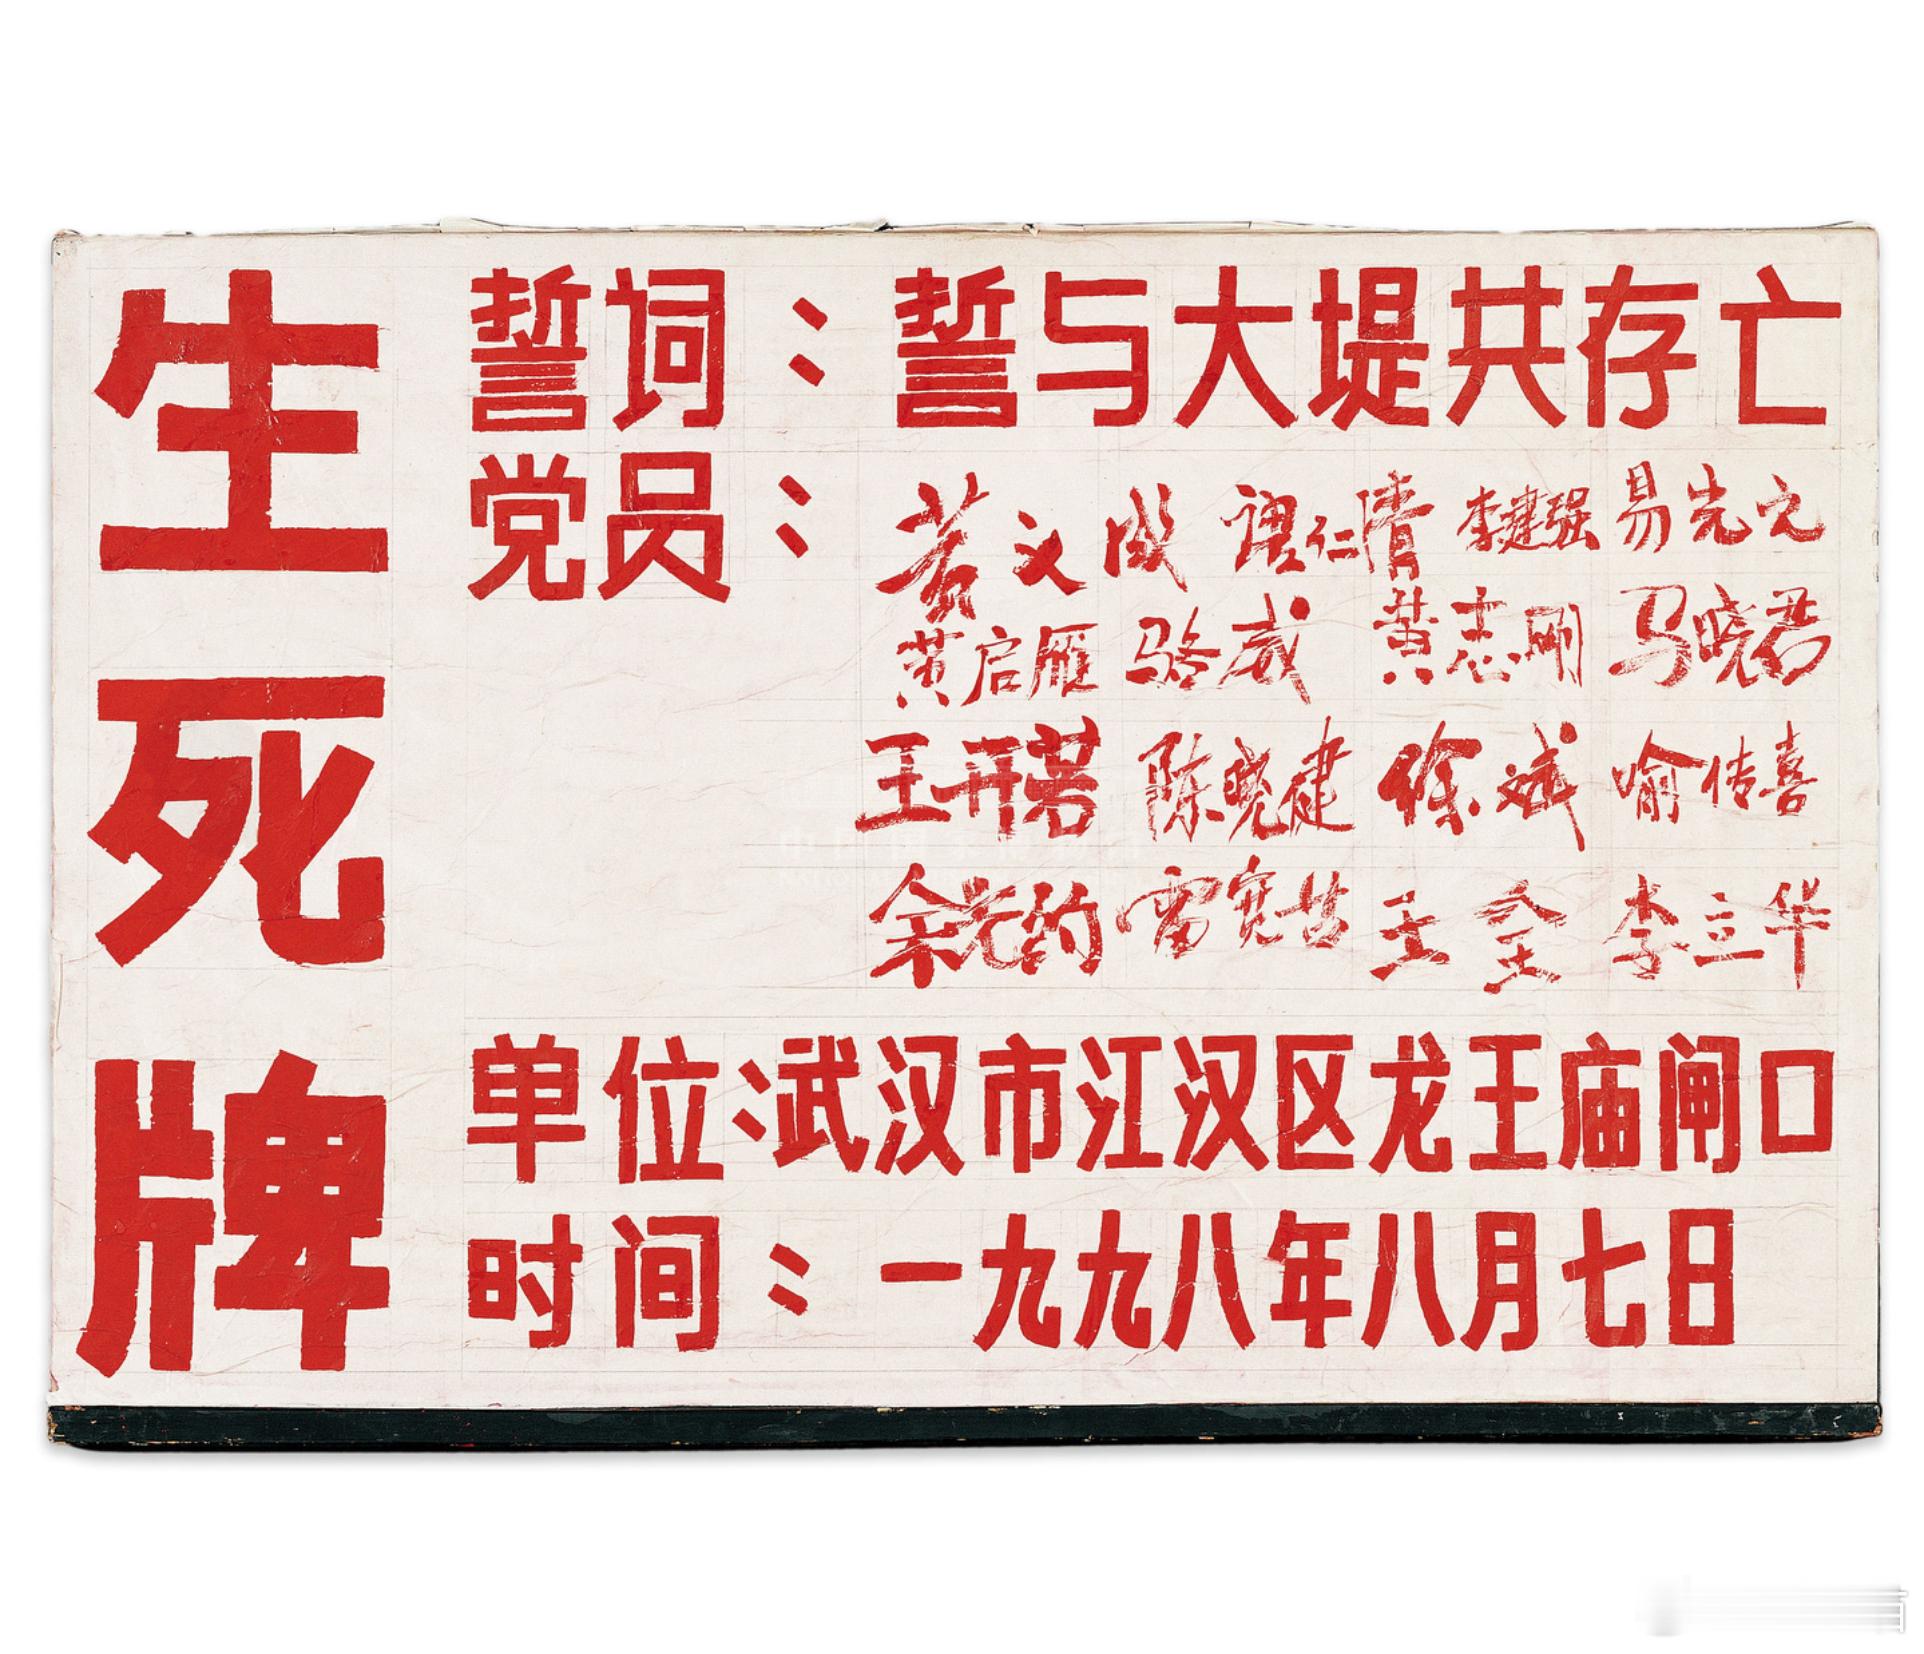 生死牌
誓词：誓与大堤共存亡
党员：
李建强 易先之
黄启雁 骆威 黄志刚 马晓君
王开若 陈晓建 徐斌 喻传喜
雷宽喜 王全 李立华
单位：武汉市江汉区龙王庙闸口
时间：一九九八年八月七日